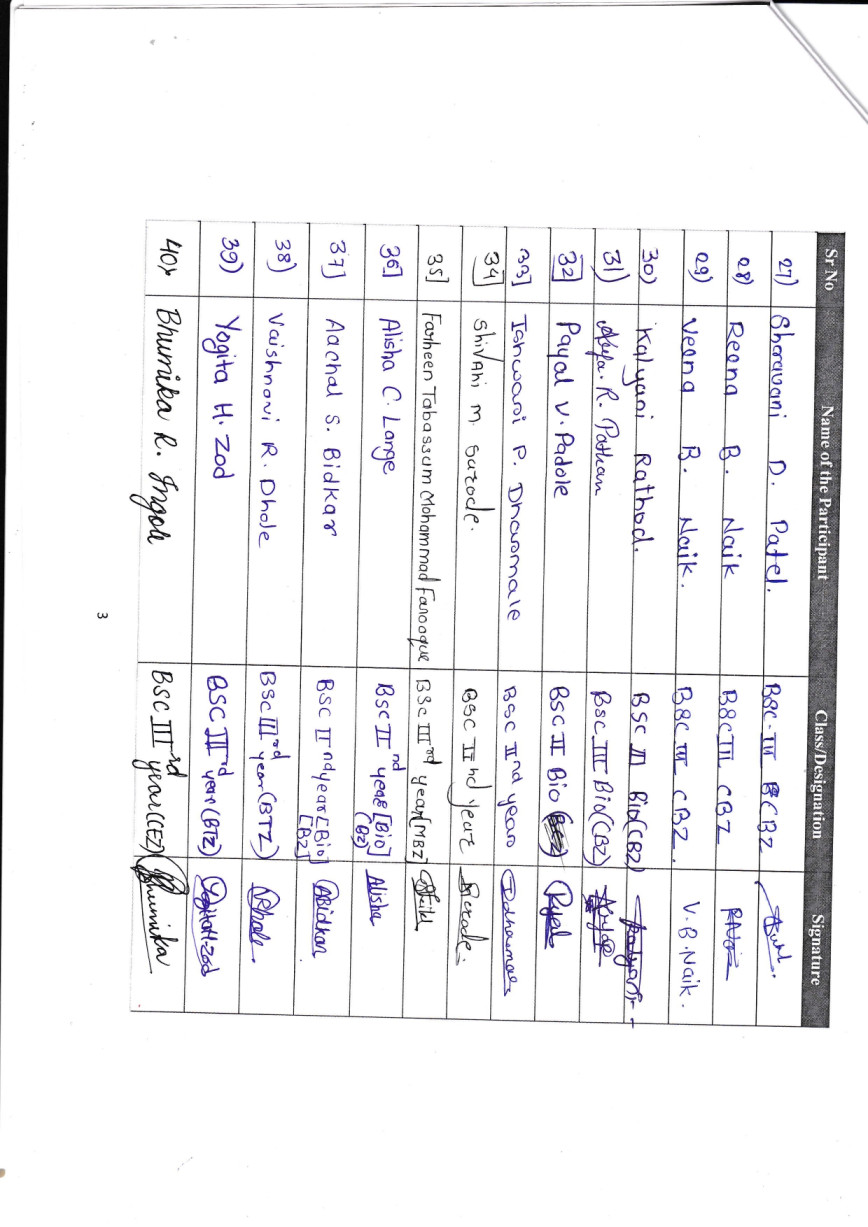 Sr No Name of the Participant Class/Designation Signature
27) Sharavani D. Patel. BSC-III CBZ
28) Reena B. Naik BSC III CBZ
29) Veena B. Naik. BSC III CBZ. V.B.Naik.
30) Kalyani Rathod. BSC III Bio(CBZ) Kalyani
31) R. Pathan BSC III Bio(CBZ)
32] Payal V. Padole BSC II Bio Payal
33] Ishwari P. Dharmale BSC II nd year Dharmale
34] Shivani M. Sarode. BSC II nd year Sarode.
35] Farheen Tabassum Mohammad Farooque BSC III rd year [MBZ]
36] Alisha C. Lange BSC II nd year [Bio] (BZ) Alisha
37] Aachal S. Bidkar BSC II nd year [Bio] [BZ] ABidkar
38) Vaishnavi R. Dhole BSC III rd year (BTZ) Dhole.
39) Yogita H. Zod BSC III rd year (BTZ) YogitaH.zod
40) Bhumika R. Ingole BSC III rd year (CEZ) Bhumika
3